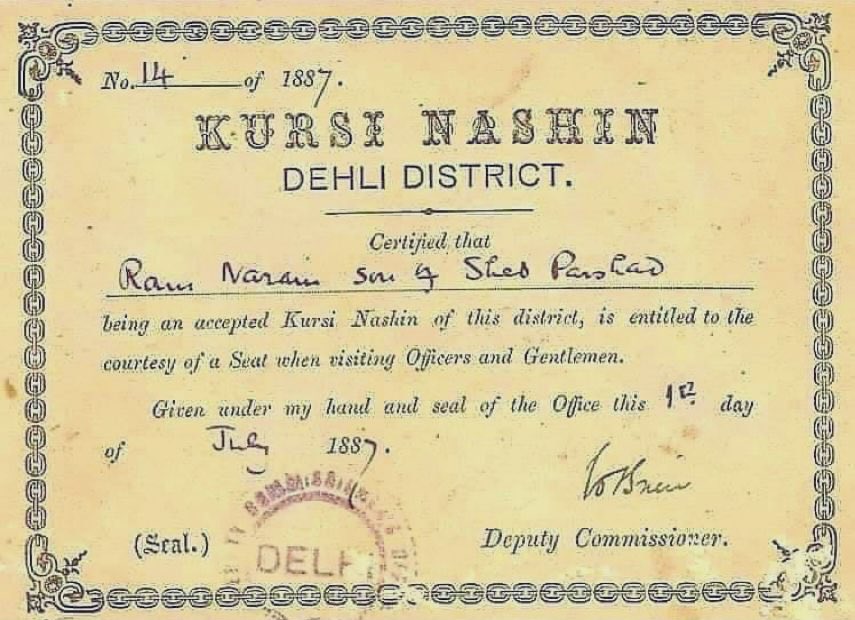 No. 14 of 1887.
KURSI NASHIN
DEHLI DISTRICT.
Certified that
Ram Narain son of Sheo Parshad
being an accepted Kursi Nashin of this district, is entitled to the
courtesy of a Seat when visiting Officers and Gentlemen.
Given under my hand and seal of the Office this 1st day
of July 1887.
(Seal.)
Deputy Commissioner.